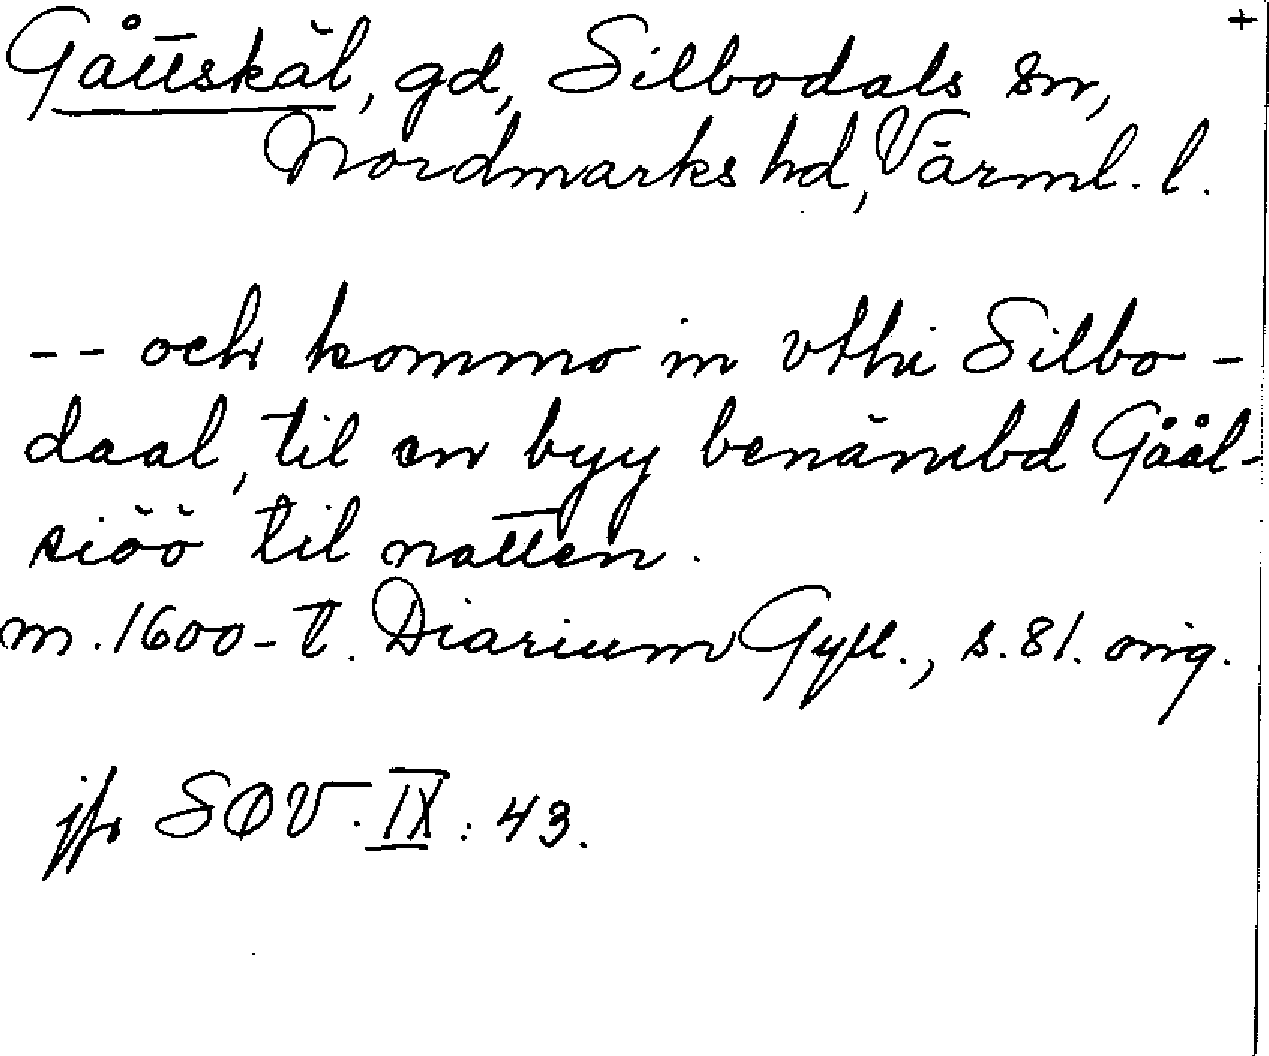 +
Gåttskäl, gd, Silbodals sn,
Nordmarks hd, Värml. l.
-- och kommo in vthi Silbo-
daal, til en byy benämbd Gåål-
siöö til natten.
m. 1600-t. Diarium Gyll., s. 81. orig.
jfr SOV. IX: 43.